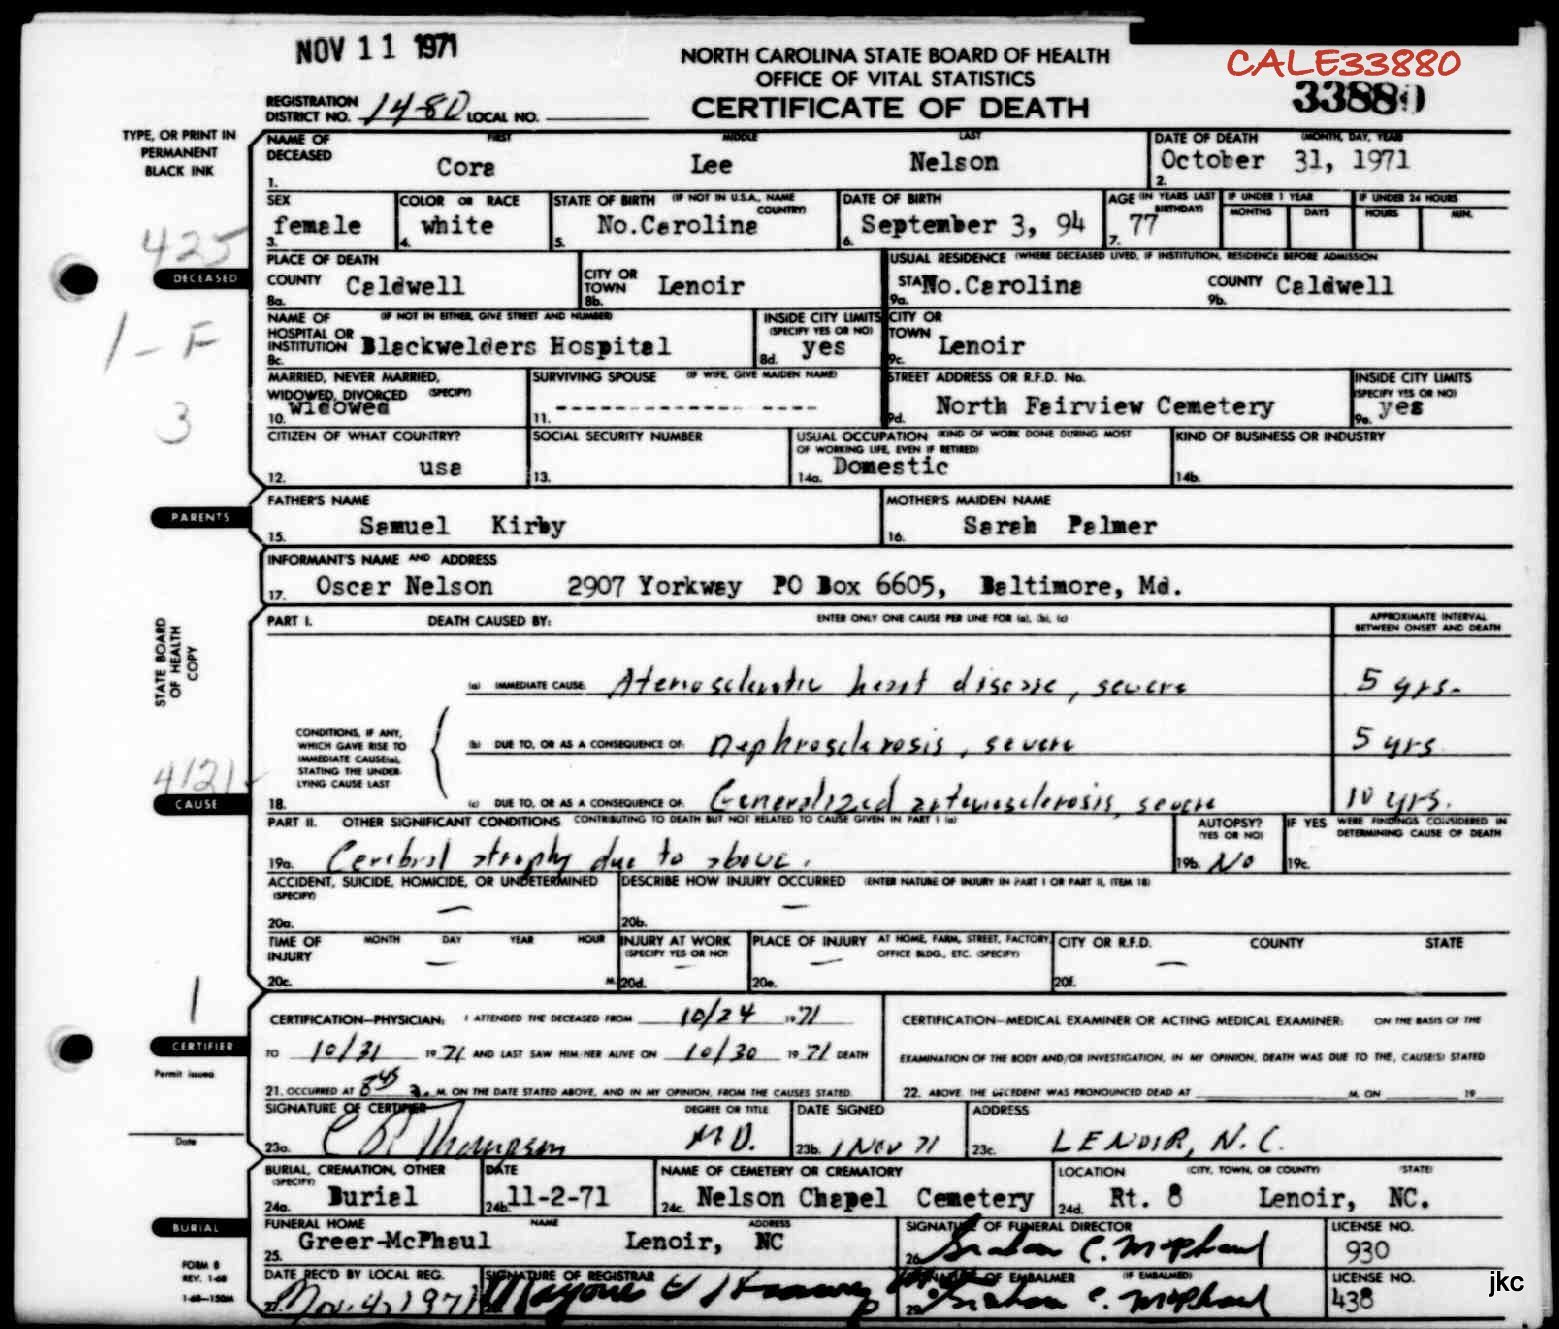 NOV 11 1971
NORTH CAROLINA STATE BOARD OF HEALTH
OFFICE OF VITAL STATISTICS
CERTIFICATE OF DEATH
CALE33880
33880
REGISTRATION DISTRICT NO. 14-80 LOCAL NO.
TYPE, OR PRINT IN PERMANENT BLACK INK
NAME OF DECEASED FIRST MIDDLE LAST DATE OF DEATH (MONTH, DAY, YEAR)
1. Cora Lee Nelson 2. October 31, 1971
SEX COLOR OR RACE STATE OF BIRTH (IF NOT IN U.S.A., NAME COUNTRY) DATE OF BIRTH AGE (IN YEARS LAST BIRTHDAY) IF UNDER 1 YEAR IF UNDER 24 HOURS
MONTHS DAYS HOURS MIN.
3. female 4. white 5. No.Carolina 6. September 3, 94 7. 77
425
DECEASED
PLACE OF DEATH USUAL RESIDENCE (WHERE DECEASED LIVED, IF INSTITUTION, RESIDENCE BEFORE ADMISSION
8a. COUNTY Caldwell 8b. CITY OR TOWN Lenoir 9a. STA No.Carolina 9b. COUNTY Caldwell
1-F
NAME OF HOSPITAL OR INSTITUTION (IF NOT IN EITHER, GIVE STREET AND NUMBER) INSIDE CITY LIMITS (SPECIFY YES OR NO) CITY OR TOWN
8c. Blackwelders Hospital 8d. yes 9c. Lenoir
3
MARRIED, NEVER MARRIED, WIDOWED, DIVORCED (SPECIFY) SURVIVING SPOUSE (IF WIFE, GIVE MAIDEN NAME) STREET ADDRESS OR R.F.D. No. INSIDE CITY LIMITS (SPECIFY YES OR NO)
10. widowed 11. ---------------- 9d. North Fairview Cemetery 9e. yes
CITIZEN OF WHAT COUNTRY? SOCIAL SECURITY NUMBER USUAL OCCUPATION (KIND OF WORK DONE DURING MOST OF WORKING LIFE, EVEN IF RETIRED) KIND OF BUSINESS OR INDUSTRY
12. usa 13. 14a. Domestic 14b.
PARENTS
FATHER'S NAME MOTHER'S MAIDEN NAME
15. Samuel Kirby 16. Sarah Palmer
INFORMANT'S NAME AND ADDRESS
17. Oscar Nelson 2907 Yorkway PO Box 6605, Baltimore, Md.
STATE BOARD OF HEALTH COPY
PART I. DEATH CAUSED BY: ENTER ONLY ONE CAUSE PER LINE FOR (a), (b), (c) APPROXIMATE INTERVAL BETWEEN ONSET AND DEATH
(a) IMMEDIATE CAUSE Aterosclerotic heart disease, severe 5 yrs.
CONDITIONS, IF ANY, WHICH GAVE RISE TO IMMEDIATE CAUSE(a), STATING THE UNDERLYING CAUSE LAST
(b) DUE TO, OR AS A CONSEQUENCE OF: Nephrosclerosis, severe 5 yrs
4121
CAUSE
18. (c) DUE TO, OR AS A CONSEQUENCE OF: Generalized arteriosclerosis, severe 10 yrs.
PART II. OTHER SIGNIFICANT CONDITIONS CONTRIBUTING TO DEATH BUT NOT RELATED TO CAUSE GIVEN IN PART I (a) AUTOPSY? (YES OR NO) IF YES WERE FINDINGS CONSIDERED IN DETERMINING CAUSE OF DEATH
19a. Cerebral atrophy due to above. 19b. No 19c.
ACCIDENT, SUICIDE, HOMICIDE, OR UNDETERMINED (SPECIFY) DESCRIBE HOW INJURY OCCURRED (ENTER NATURE OF INJURY IN PART I OR PART II, ITEM 18)
20a. — 20b. —
TIME OF INJURY MONTH DAY YEAR HOUR INJURY AT WORK (SPECIFY YES OR NO) PLACE OF INJURY AT HOME, FARM, STREET, FACTORY, OFFICE BLDG., ETC. (SPECIFY) CITY OR R.F.D. COUNTY STATE
20c. — M. 20d. — 20e. — 20f. —
1
CERTIFICATION—PHYSICIAN: I ATTENDED THE DECEASED FROM 10/24 19 71 CERTIFICATION—MEDICAL EXAMINER OR ACTING MEDICAL EXAMINER: ON THE BASIS OF THE
CERTIFIER
TO 10/31 19 71 AND LAST SAW HIM/HER ALIVE ON 10/30 19 71 DEATH EXAMINATION OF THE BODY AND/OR INVESTIGATION, IN MY OPINION, DEATH WAS DUE TO THE, CAUSE(S) STATED
Permit issued
21. OCCURRED AT 8 45 a. M. ON THE DATE STATED ABOVE, AND IN MY OPINION, FROM THE CAUSES STATED. 22. ABOVE. THE DECEDENT WAS PRONOUNCED DEAD AT M. ON 19
Date
SIGNATURE OF CERTIFIER DEGREE OR TITLE DATE SIGNED ADDRESS
23a. Thompson M D. 23b. 1 Nov 71 23c. LENOIR, N.C.
BURIAL, CREMATION, OTHER (SPECIFY) DATE NAME OF CEMETERY OR CREMATORY LOCATION (CITY, TOWN, OR COUNTY) (STATE)
24a. Burial 24b. 11-2-71 24c. Nelson Chapel Cemetery 24d. Rt. 8 Lenoir, NC.
BURIAL
FUNERAL HOME NAME ADDRESS SIGNATURE OF FUNERAL DIRECTOR LICENSE NO.
25. Greer-McPhaul Lenoir, NC 26. Graham C. McPhaul 930
FORM 8
REV. 1-68
1-68—150M
DATE REC'D BY LOCAL REG. SIGNATURE OF REGISTRAR SIGNATURE OF EMBALMER (IF EMBALMED) LICENSE NO.
Nov. 4, 1971 Graham C. McPhaul 438
jkc